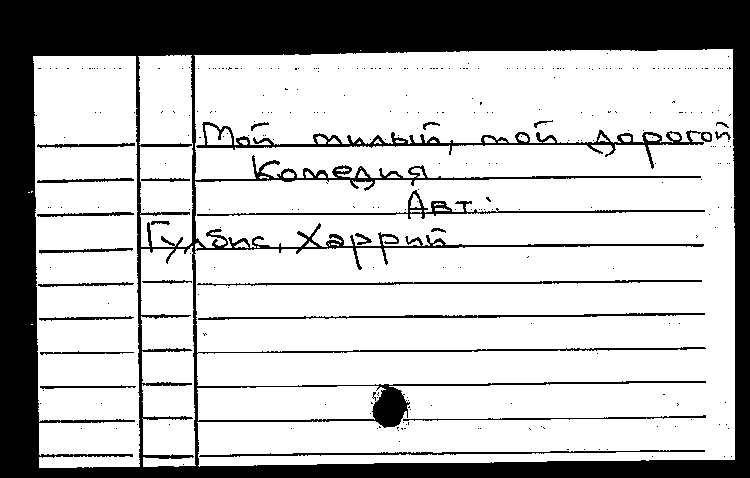 Мой милый, мой дорогой
Комедия.
Авт.:
Гулбис, Харрий